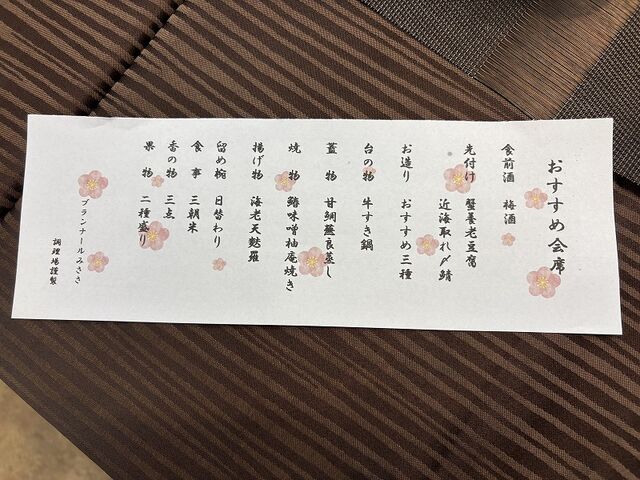 おすすめ会席
食前酒 梅酒
先付け 蟹養老豆腐
近海取れ〆鯖
お造り おすすめ三種
台の物 牛すき鍋
蓋物 甘鯛蕪良蒸し
焼物 鰆味噌柚庵焼き
揚げ物 海老天麩羅
留め椀 日替わり
食事 三朝米
香の物 三点
果物 二種盛り
ブランナールみささ
調理場謹製